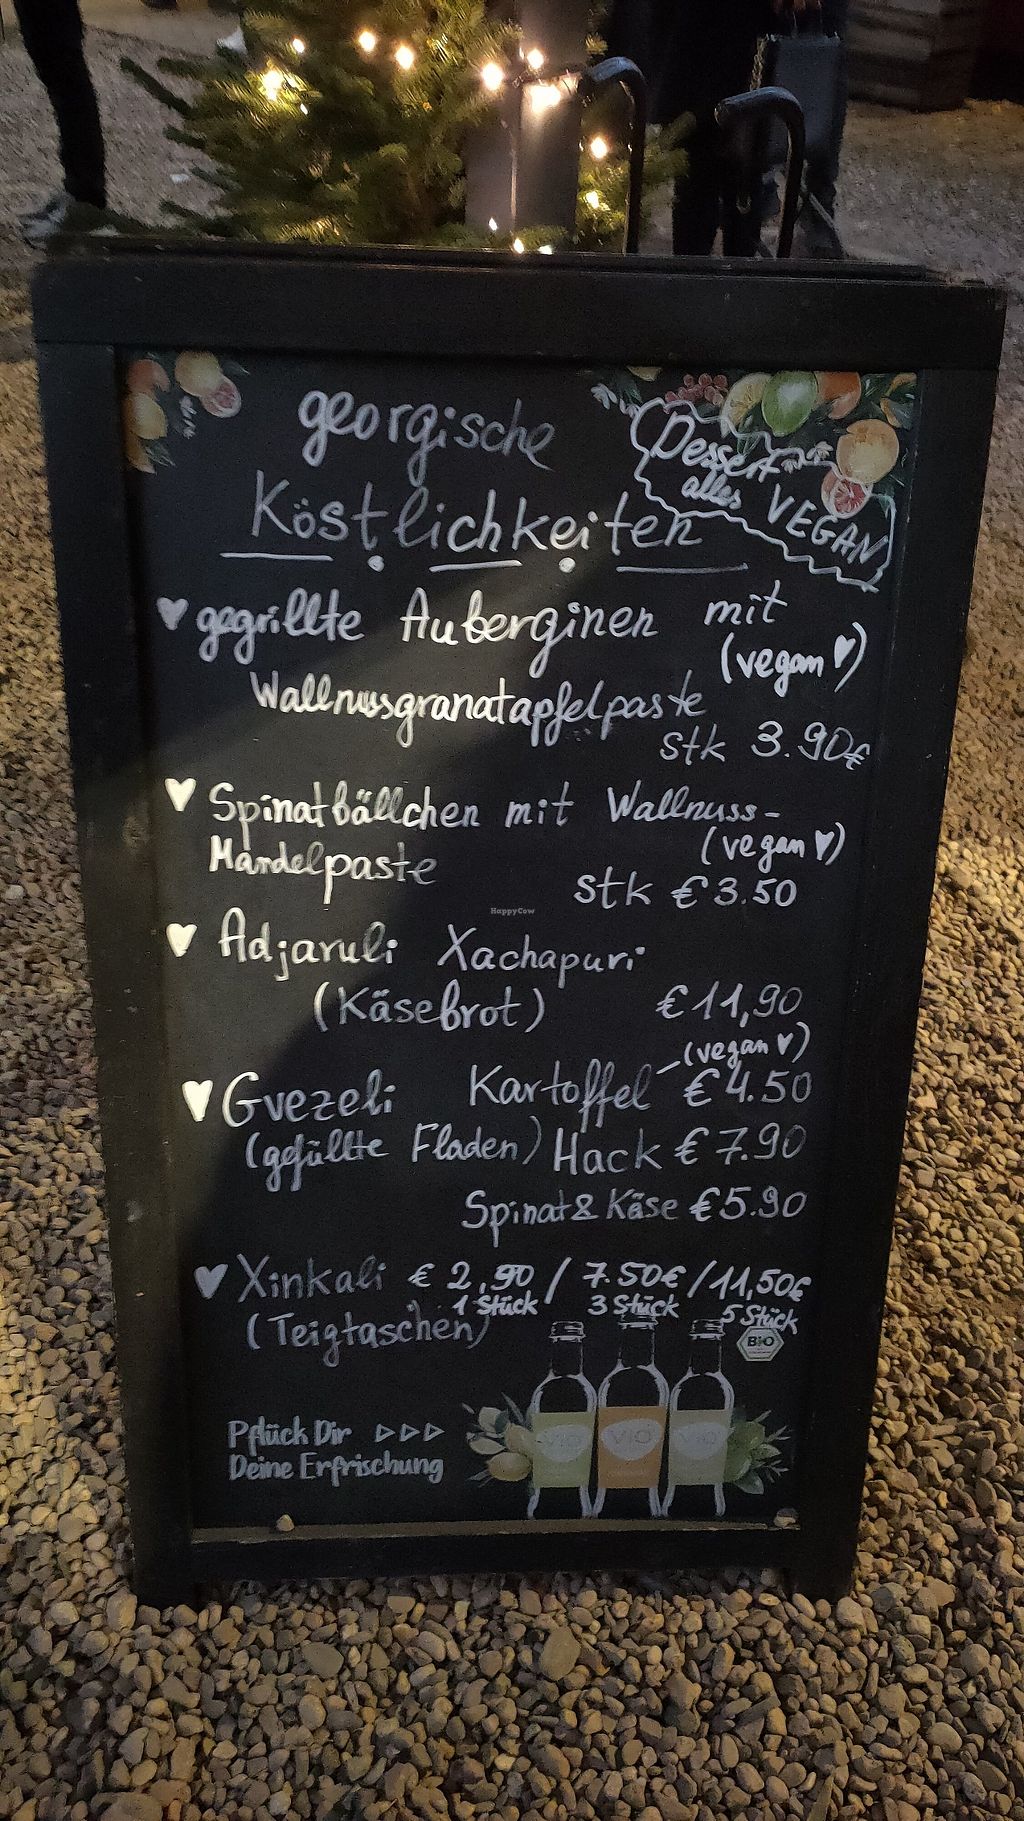 georgische
Köstlichkeiten
Dessert
alles VEGAN
gegrillte Auberginen mit
(vegan ♥)
Wallnussgranatapfelpaste
stk 3.90€
Spinatbällchen mit Wallnuss-
(vegan ♥)
Mandelpaste
stk € 3.50
HappyCow
Adjaruli Xachapuri
(Käsebrot) € 11,90
(vegan ♥)
Gvezeli Kartoffel € 4.50
(gefüllte Fladen) Hack € 7.90
Spinat & Käse € 5.90
Xinkali € 2,90 / 7.50€ / 11,50€
1 Stück 3 Stück 5 Stück
(Teigtaschen)
BIO
Pflück Dir ▷▷▷
Deine Erfrischung
ViO ViO ViO